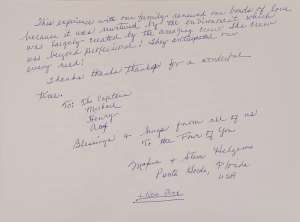 This experience with our family renewed our bonds of love
because it was nurtured by the environment which
was largely created by the amazing crew. The crew
was beyond professional! They anticipated our
every need!
Thanks thanks thanks for a wonderful
time.
To: The Captain
Michael
Henry
Blessings & hugs from all of us
To the Four of You
& Steve
Punta Gorda, Florida
USA